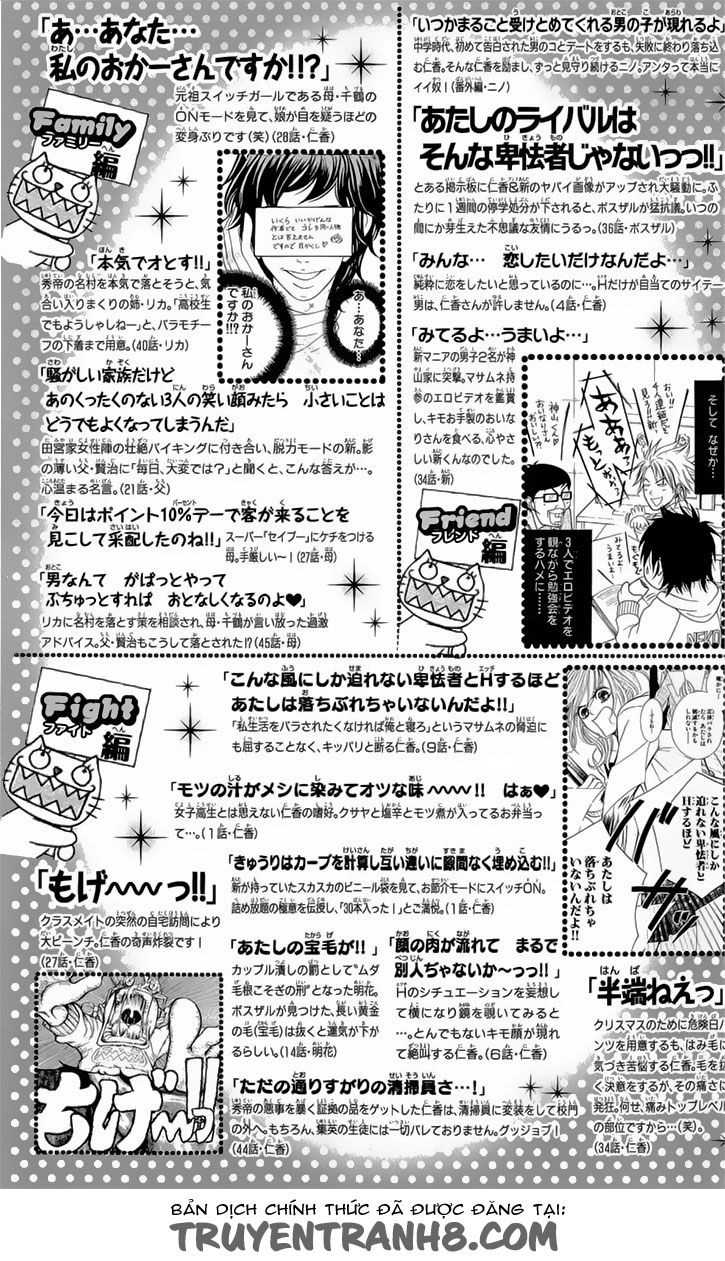 「あ…あなた…
私のおかーさんですか!!?」
元祖スイッチガールである母・千鶴の
ONモードを見て、娘が目を疑うほどの
変身ぶりです(笑)(28話・仁香)
Family
ファミリー
編
いくら いいかげんな
あ…あなた…
私のおかーさん
ですか!!?
「本気でオとす!!」
秀帝の名村を本気で落とそうと、気
合い入りまくりの姉・リカ。「高校生
でもようしゃしねーっ」と、バラモチー
フの下着まで用意。(40話・リカ)
「騒がしい家族だけど
あのくったくのない3人の笑い顔みたら 小さいことは
どうでもよくなってしまうんだ」
田宮家女性陣の壮絶バイキングに付き合い、脱力モードの新。影
の薄い父・賢治に「毎日、大変では?」と聞くと、こんな答えが…。
心温まる名言。(21話・父)
「今日はポイント10%デーで客が来ることを
見こして采配したのね!!」
スーパー「セイブー」にケチをつける
母。手厳しい〜!(27話・母)
「男なんて がばっとやって
ぶちゅっとすれば おとなしくなるのよ♥」
リカに名村を落とす策を相談され、母・千鶴が言い放った過激
アドバイス。父・賢治もこうして落とされた!?(45話・母)
「いつかまるごと受けとめてくれる男の子が現れるよ
中学時代、初めて告白された男のコとデートをするも、失敗に終わり落ち込
む仁香。そんな仁香を励まし、ずっと見守り続けるニノ。アンタって本当に
イイ奴!(番外編・ニノ)
「あたしのライバルは
そんな卑怯者じゃないっっ!!」
とある掲示板に仁香&新のヤバイ画像がアップされ大騒動に。ふ
たりに1週間の停学処分が下されると、ボスザルが猛抗議。いつの
間にか芽生えた不思議な友情にうるっ。(36話・ボスザル)
「みんな… 恋したいだけなんだよ…」
純粋に恋をしたいと思っているのに…。Hだけが目当てのサイテー
男は、仁香さんが許しません。(4話・仁香)
「みてるよ…うまいよ」
新マニアの男子2名が神
山家に突撃。マサムネ持
参のエロビデオを鑑賞
し、キモお手製のおいな
りさんを食べる、心やさ
しい新くんなのでした。
(34話・新)
Friend
フレンド
編
そして なぜか…
あああっ
もっとぉ
みてるよ
うまいよ
3人でエロビデオを
観ながら勉強会を
するハメに……
Fight
ファイト
編
「こんな風にしか迫れない卑怯者とHするほど
あたしは落ちぶれちゃいないんだよ!!」
「私生活をバラされたくなければ俺と寝ろ」というマサムネの脅迫に
も屈することなく、キッパリと断る仁香。(9話・仁香)
「モツの汁がメシに染みてオツな味〜〜〜!! はぁ♥」
女子高生とは思えない仁香の嗜好。クサヤと塩辛とモツ煮が入ってるお弁当
って…。(1話・仁香)
「きゅうりはカーブを計算し互い違いに隙間なく埋め込む!!」
新が持っていたスカスカのビニール袋を見て、お節介モードにスイッチON。
詰め放題の極意を伝授し、「30本入った!」とご満悦。(1話・仁香)
こんな風にしか
迫れない卑怯者と
Hするほど
あたしは
落ちぶれちゃ
いないんだよ!!
「もげ〜〜〜っ!!」
クラスメイトの突然の自宅訪問により
大ピーンチ。仁香の奇声炸裂です!
(27話・仁香)
もげ〜〜っ!!
「あたしの宝毛が!!」
カップル潰しの罰として“ムダ
毛根こそぎの刑”となった明花。
ボスザルが見つけた、長い黄金
の毛(宝毛)は抜くと運気が下が
るらしい。(14話・明花)
「顔の肉が流れて まるで
別人ぢゃないか〜っっ!!」
Hのシチュエーションを妄想し
て横になり鏡を覗いてみると
…。とんでもないキモ顔が現れ
て絶叫する仁香。(6話・仁香)
「ただの通りすがりの清掃員さ…!」
秀帝の悪事を暴く証拠の品をゲットした仁香は、清掃員に変装をして校門
の外へ。もちろん、集英の生徒には一切バレておりません。グッジョブ!
(44話・仁香)
「半端ねえっ
クリスマスのために危険日パ
ンツを用意するも、はみ毛に
気づき苦悩する仁香。毛を抜
く決意をするが、その痛さに
発狂。何せ、痛みトップレベル
の部位ですから…(笑)。
(34話・仁香)
BẢN DỊCH CHÍNH THỨC ĐÃ ĐƯỢC ĐĂNG TẠI:
TRUYENTRANH8.COM